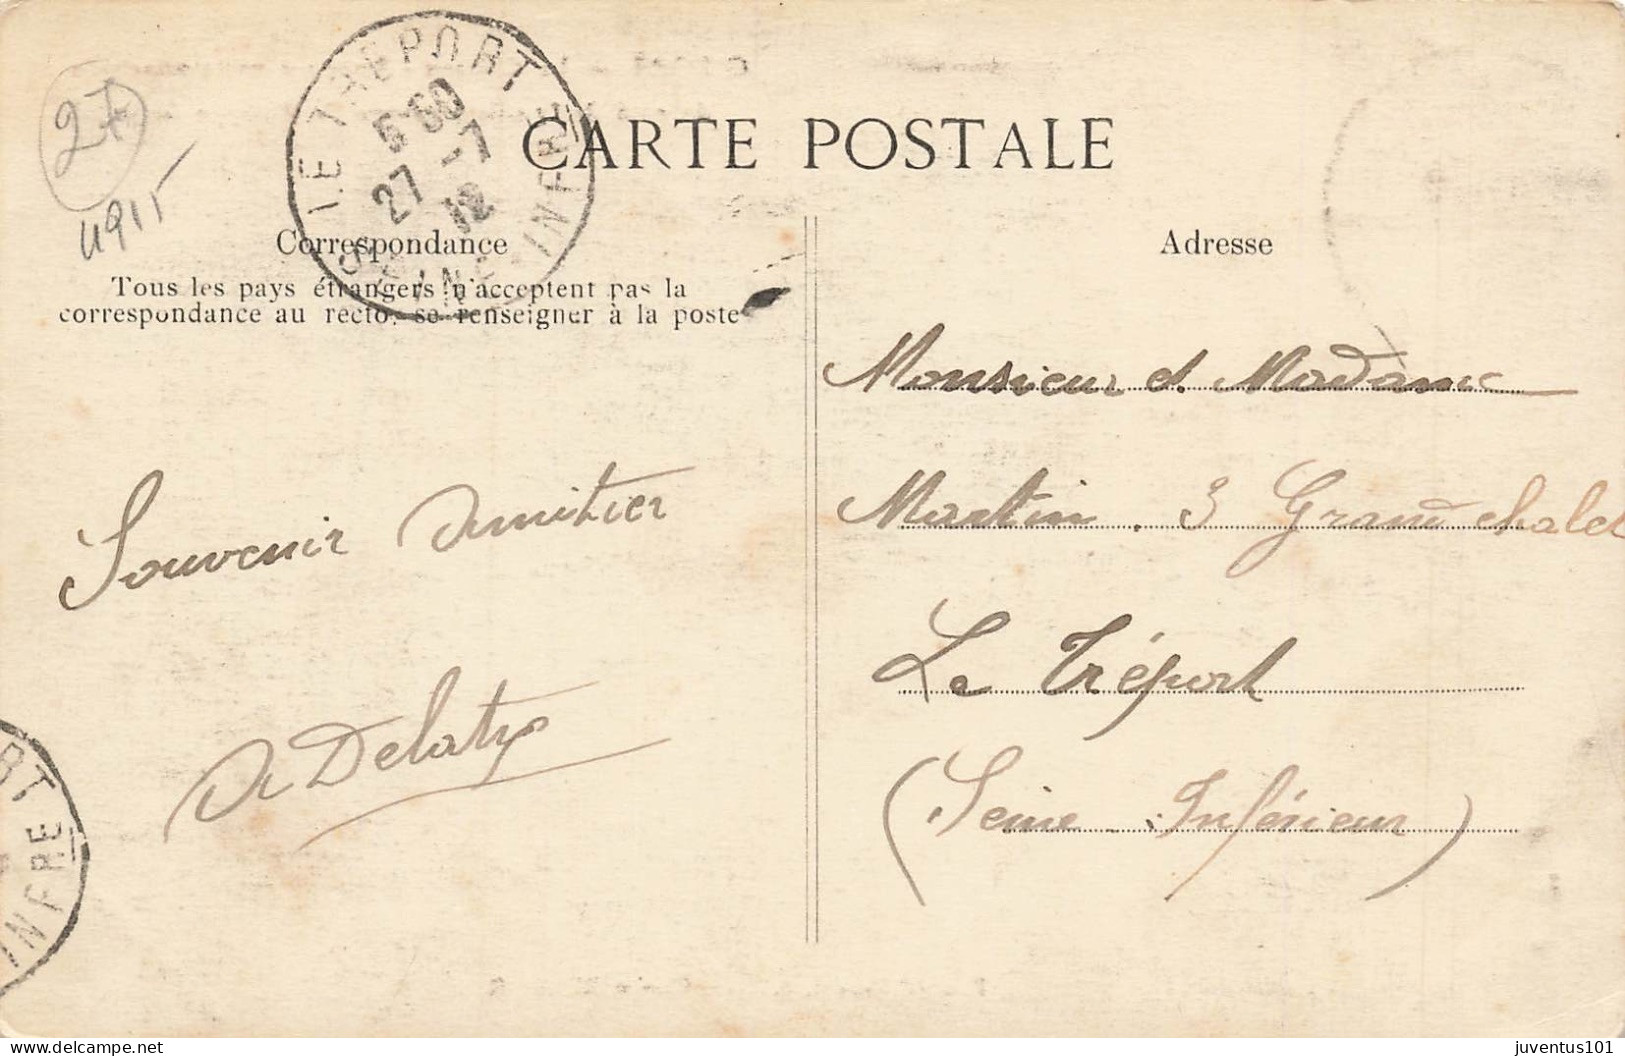 LE TREPORT
SEINE INFRE
5 50
27 -7
12
27
4915
CARTE POSTALE
Correspondance
Tous les pays étrangers n'acceptent pas la
correspondance au recto, se renseigner à la poste
Souvenir Amitier
Adresse
Monsieur et Madame
Martin. 3 Grand chalet
Le Tréport
(Seine Inférieur)
RT
INFRE
Delcampe.net
juventus101